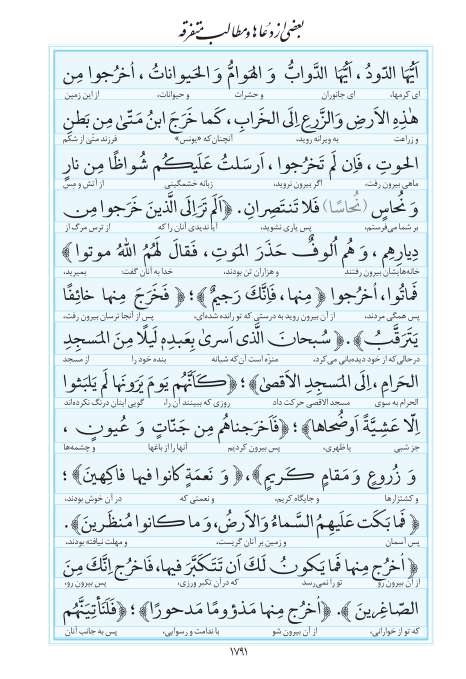 بعضی از دعاها و مطالب متفرقه
اَیُّهَا الدّودُ ، اَیُّهَا الدَّوابُّ وَ الهَوامُّ وَ الحَیواناتُ ، اُخرُجوا مِن
ای کرمها، ای جانوران و حشرات و حیوانات، از این زمین
هٰذِهِ الاَرضِ وَالزَّرعِ اِلَی الخَرابِ ، کَما خَرَجَ ابنُ مَتّیٰ مِن بَطنِ
و زراعت به ویرانه روید، آنچنان که «یونس» فرزند متّی از شکم
الحوتِ ، فَاِن لَم تَخرُجوا ، اَرسَلتُ عَلَیکُم شُواظًا مِن نارٍ
ماهی بیرون رفت، اگر بیرون نروید، زبانه خشمگینی از آتش و مس
وَ نُحاسٍ (نُحاسًا) فَلا تَنتَصِرانِ . ﴿اَلَم تَرَ اِلَی الَّذینَ خَرَجوا مِن
بر شما می‌فرستم، پس یاری نشوید، آیا ندیدی آنان را که از ترس مرگ از
دِیارِهِم ، وَ هُم اُلوفٌ حَذَرَ المَوتِ ، فَقالَ لَهُمُ اللهُ موتوا﴾
خانه‌هایشان بیرون رفتند و هزاران تن بودند، خدا به آنان گفت: بمیرید،
فَماتُوا، اُخرُجوا ﴿ مِنها، فَاِنَّکَ رَجیمٌ﴾ ؛ ﴿ فَخَرَجَ مِنها خائِفًا
پس همگی مردند، از آن بیرون روید به درستی که تو رانده شده‌ای، پس از آنجا ترسان بیرون رفت،
یَتَرَقَّبُ﴾ . ﴿ سُبحانَ الَّذی اَسریٰ بِعَبدِهِ لَیلًا مِنَ المَسجِدِ
درحالی‌که از خود دیده‌بانی می‌کرد، منزّه است آن‌که شبانه بنده خود را از مسجد
الحَرامِ ، اِلَی المَسجِدِ الاَقصیٰ﴾ ؛ ﴿کَاَنَّهُم یَومَ یَرَونَها لَم یَلبَثوا
الحرام به سوی مسجد الاقصی حرکت داد روزی که ببینند آن را، گویی اینان درنگ نکرده‌اند
اِلّا عَشِیَّةً اَوضُحاها﴾ ؛ ﴿فَاَخرَجناهُم مِن جَنّاتٍ وَ عُیونٍ ،
جز شبی یا ظهری، پس بیرون کردیم آنها را از باغها و چشمه‌ها
وَ زُروعٍ وَ مَقامٍ کَریمٍ﴾، ﴿ وَ نَعمَةٍ کانوا فیها فاکِهینَ﴾ ؛
و کشتزارها و جایگاه کریم، و نعمتی که در آن خوش بودند،
﴿ فَما بَکَت عَلَیهِمُ السَّماءُ وَالاَرضُ، وَ ما کانوا مُنظَرینَ﴾ .
پس آسمان و زمین بر آنان گریست، و مهلت نیافته بودند،
﴿ اُخرُج مِنها فَما یَکونُ لَکَ اَن تَتَکَبَّرَ فیها، فَاخرُج اِنَّکَ مِنَ
از آن بیرون رو تو را نمی‌رسد که در آن تکبر ورزی، پس بیرون رو،
الصّاغِرینَ ﴾ . ﴿اُخرُج مِنها مَذؤومًا مَدحورًا﴾ ؛ ﴿فَلَنَأتِیَنَّهُم
که تو از خوارانی، از آن بیرون شو با ندامت و رسوایی، پس به جانب آنان
۱۷۹۱